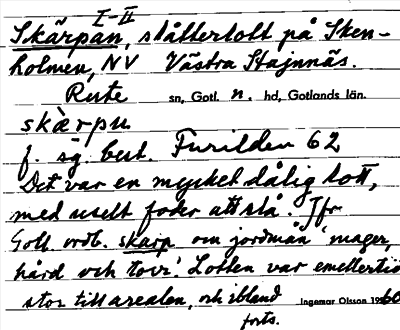 I-II
Skärpan, slåttertott på Sken-
holmen, NV Västra Stajnnäs.
Rute sn, Gotl. n. hd, Gotlands län.
skàrpu
f. sg. best. Furilden 62
Det var en mycket dålig tott,
med uselt foder att slå. Jfr
Gotl. ordb. skarp om jordmån 'mager,
hård och torr'. Lotten var emellertid
stor till arealen, och ibland Ingemar Olsson 1960
forts.